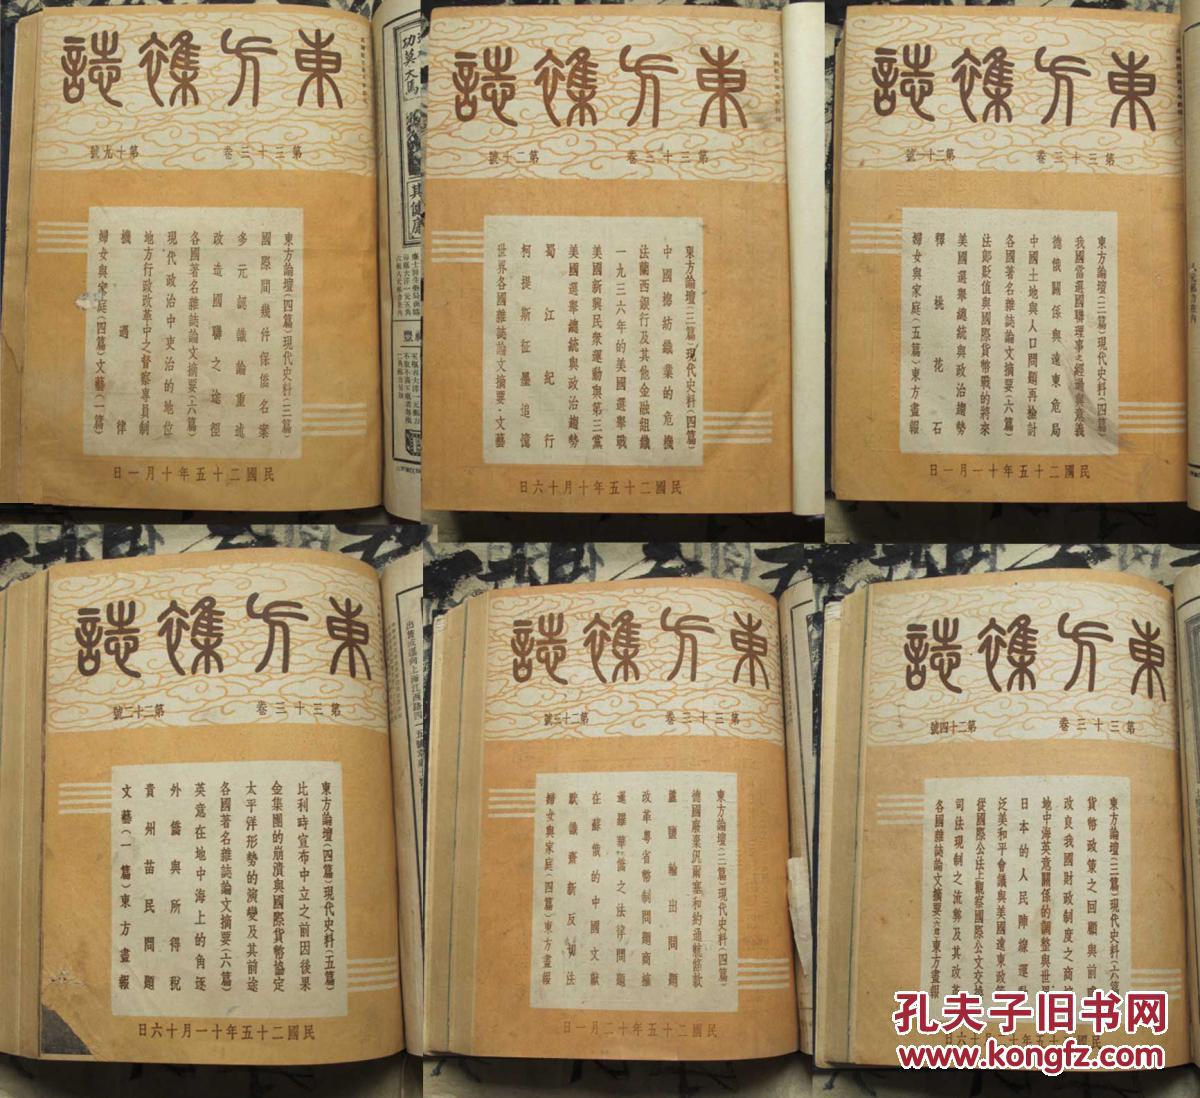 東方雜誌
第三十三卷
第十九號
東方論壇(四篇)現代史料(三篇)
國際間幾件保僑名案
多元認識論重述
改造國聯之途徑
各國著名雜誌論文摘要(六篇)
現代政治中吏治的地位
地方行政改革中之督察專員制
機遇律
婦女與家庭(四篇)文藝(一篇)
民國二十五年十月一日
東方雜誌
第三十三卷
第二十號
東方論壇(三篇)現代史料(四篇)
中國棉紡織業的危機
法蘭西銀行及其他金融組織
一九三六年的美國選舉戰
美國新興民衆運動與第三黨
美國選舉總統與政治趨勢
蜀江紀行
柯提斯征墨追憶
世界各國雜誌論文摘要·文藝
民國二十五年十月十六日
東方雜誌
第三十三卷
第二十一號
東方論壇(三篇)現代史料(四篇)
我國當選國聯理事之經過與意義
德俄關係與遠東危局
中國土地與人口問題再檢討
各國著名雜誌論文摘要(六篇)
法郎貶值與國際貨幣戰的將來
美國選舉總統與政治趨勢
釋桃花石
婦女與家庭(五篇)東方畫報
民國二十五年十一月一日
東方雜誌
第三十三卷
第二十二號
東方論壇(四篇)現代史料(五篇)
比利時宣布中立之前因後果
金集團的崩潰與國際貨幣協定
太平洋形勢的演變及其前途
各國著名雜誌論文摘要(六篇)
英意在地中海上的角逐
外僑與所得稅
貴州苗民問題
文藝(一篇)東方畫報
民國二十五年十一月十六日
東方雜誌
第三十三卷
第二十三號
東方論壇(三篇)現代史料(四篇)
德國廢棄凡爾塞和約通航條款
蘆鹽輸出問題
改革粵省幣制問題商榷
暹羅華僑之法律問題
在蘇俄的中國文獻
默識齋新反切法
婦女與家庭(四篇)東方畫報
民國二十五年十二月一日
東方雜誌
第三十三卷
第二十四號
東方論壇(三篇)現代史料(六篇)
貨幣政策之回顧與前
改良我國財政制度之商
地中海英意關係的調整與世
日本的人民陣線運
泛美和平會議與美國遠東政
從國際公法上觀察國際公文交
司法現制之流弊及其改
各國雜誌論文摘要(六篇)東方畫報
孔夫子旧书网
www.kongfz.com